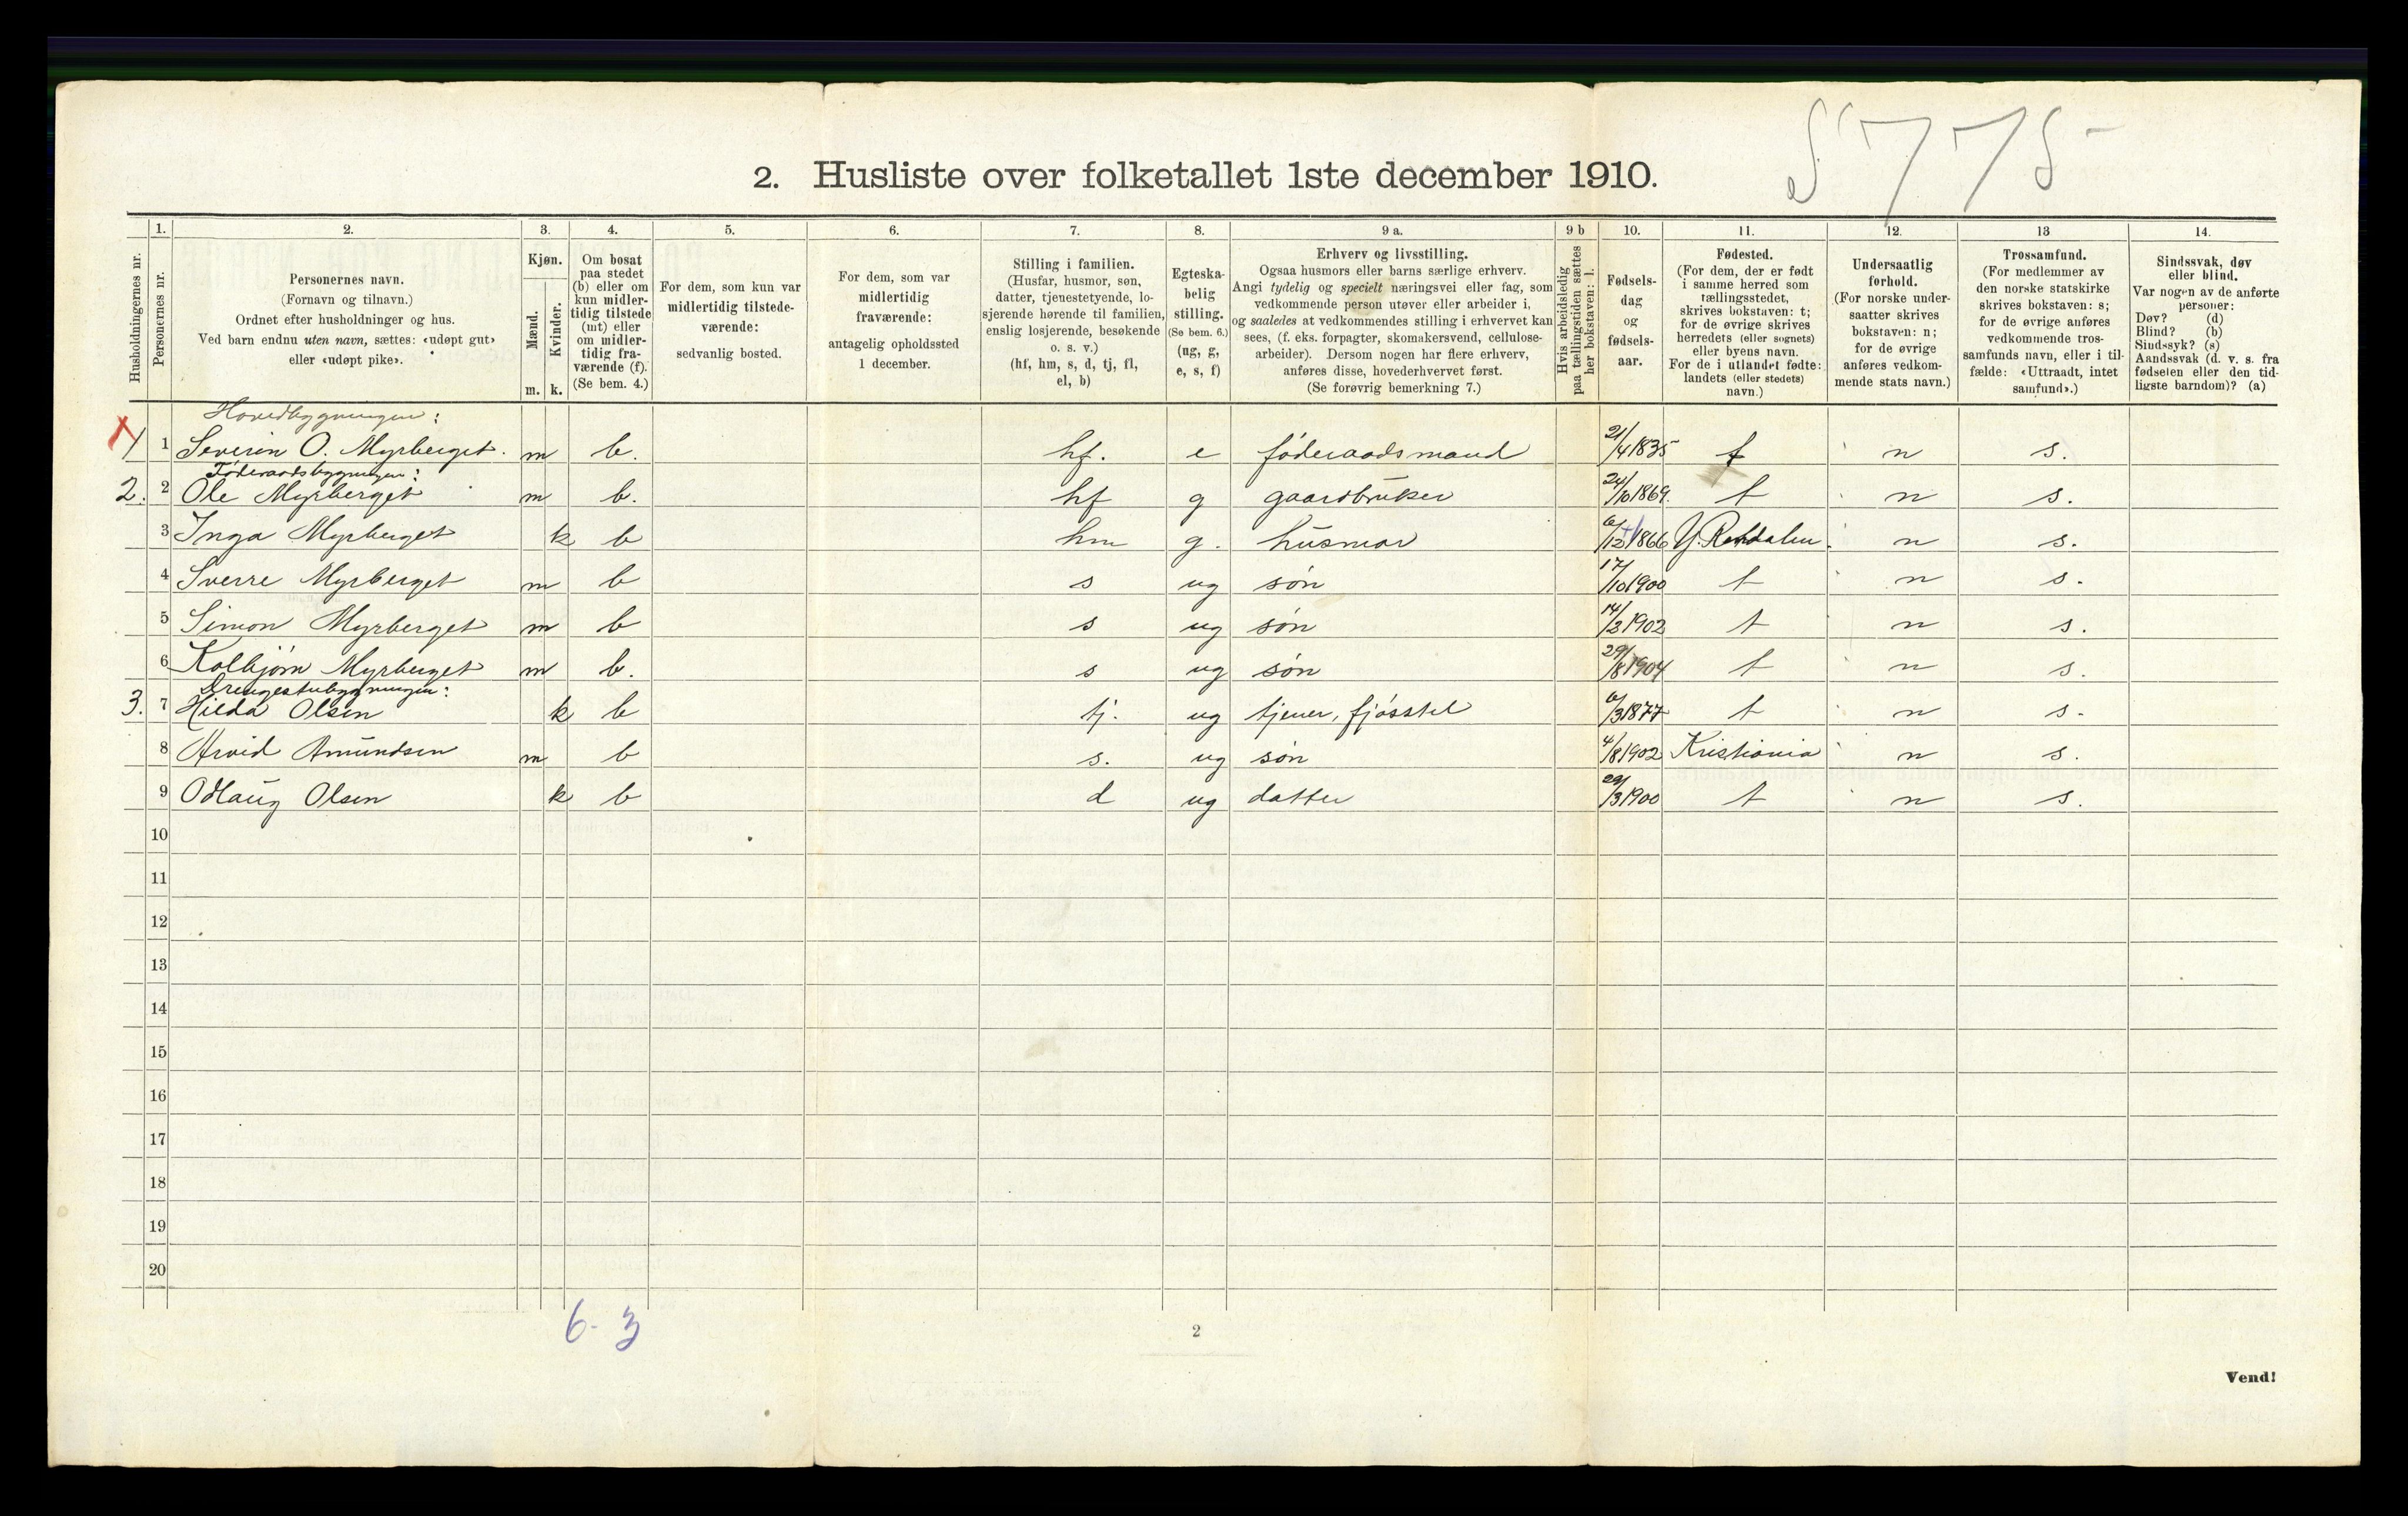 5775-
2. Husliste over folketallet 1ste december 1910.
Husholdningernes nr.
1. Personernes nr.
2. Personernes navn.
(Fornavn og tilnavn.)
Ordnet efter husholdninger og hus.
Ved barn endnu uten navn, sættes: «udøpt gut»
eller «udøpt pike».
3. Kjøn.
Mænd. m.
Kvinder. k.
4. Om bosat
paa stedet
(b) eller om
kun midler-
tidig tilstede
(mt) eller
om midler-
tidig fra-
værende (f).
(Se bem. 4.)
5. For dem, som kun var
midlertidig tilstede-
værende:
sedvanlig bosted.
6. For dem, som var
midlertidig
fraværende:
antagelig opholdssted
1 december.
7. Stilling i familien.
(Husfar, husmor, søn,
datter, tjenestetyende, lo-
sjerende hørende til familien,
enslig losjerende, besøkende
o. s. v.)
(hf, hm, s, d, tj, fl,
el, b)
8. Egteska-
belig
stilling.
(Se bem. 6.)
(ug, g,
e, s, f)
9 a. Erhverv og livsstilling.
Ogsaa husmors eller barns særlige erhverv.
Angi tydelig og specielt næringsvei eller fag, som
vedkommende person utøver eller arbeider i,
og saaledes at vedkommendes stilling i erhvervet kan
sees, (f. eks. forpagter, skomakersvend, cellulose-
arbeider). Dersom nogen har flere erhverv,
anføres disse, hovederhvervet først.
(Se forøvrig bemerkning 7.)
9 b Hvis arbeidsledig
paa tællingstiden sættes
her bokstaven: l.
10. Fødsels-
dag
og
fødsels-
aar.
11. Fødested.
(For dem, der er født
i samme herred som
tællingsstedet,
skrives bokstaven: t;
for de øvrige skrives
herredets (eller sognets)
eller byens navn.
For de i utlandet fødte:
landets (eller stedets)
navn.)
12. Undersaatlig
forhold.
(For norske under-
saatter skrives
bokstaven: n;
for de øvrige
anføres vedkom-
mende stats navn.)
13 Trossamfund.
(For medlemmer av
den norske statskirke
skrives bokstaven: s;
for de øvrige anføres
vedkommende tros-
samfunds navn, eller i til-
fælde: «Uttraadt, intet
samfund».)
14. Sindssvak, døv
eller blind.
Var nogen av de anførte
personer:
Døv? (d)
Blind? (b)
Sindssyk? (s)
Aandssvak (d. v. s. fra
fødselen eller den tid-
ligste barndom)? (a)
Hovedbygningen:
1 Severin O. Myrberget. m b. hf. e föderaadsmand 21/4 1835 t n s.
Föderaadsbygningen:
2. 2 Ole Myrberget m b. hf g gaardbruker 24/10 1869. t n s.
3 Inga Myrberget k b hm g. husmor 6/12 1866 Y. Rendalen. n s.
4 Sverre Myrberget m b s ug søn 17/10 1900 t n s.
5 Simon Myrberget m b s ug søn 14/2 1902 t n s.
6 Kolbjørn Myrberget m b. s ug søn 29/8 1904 t n s.
Drengestubygningen:
3. 7 Hilda Olsen k b tj. ug tjener, fjøsstel 6/3 1877 t n s.
8 Arvid Amundsen m b s. ug søn 4/8 1902 Kristiania n s.
9 Odlaug Olsen k b d ug datter 29/3 1900 t n s.
10
11
12
13
14
15
16
17
18
19
20
6-3
2
Vend!